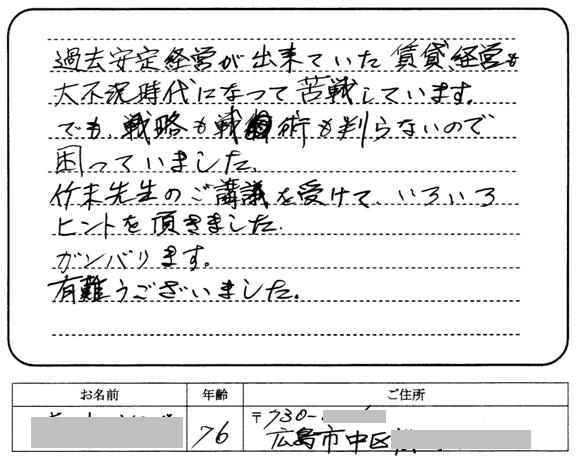 過去安定経営が出来ていた賃貸経営も
大不況時代になって苦戦しています。
でも、戦略も戦術も判らないので
困っていました。
竹末先生のご講義を受けて、いろいろ
ヒントを頂きました。
ガンバリます。
有難うございました。
お名前 年齢 ご住所
76 〒730-
広島市中区